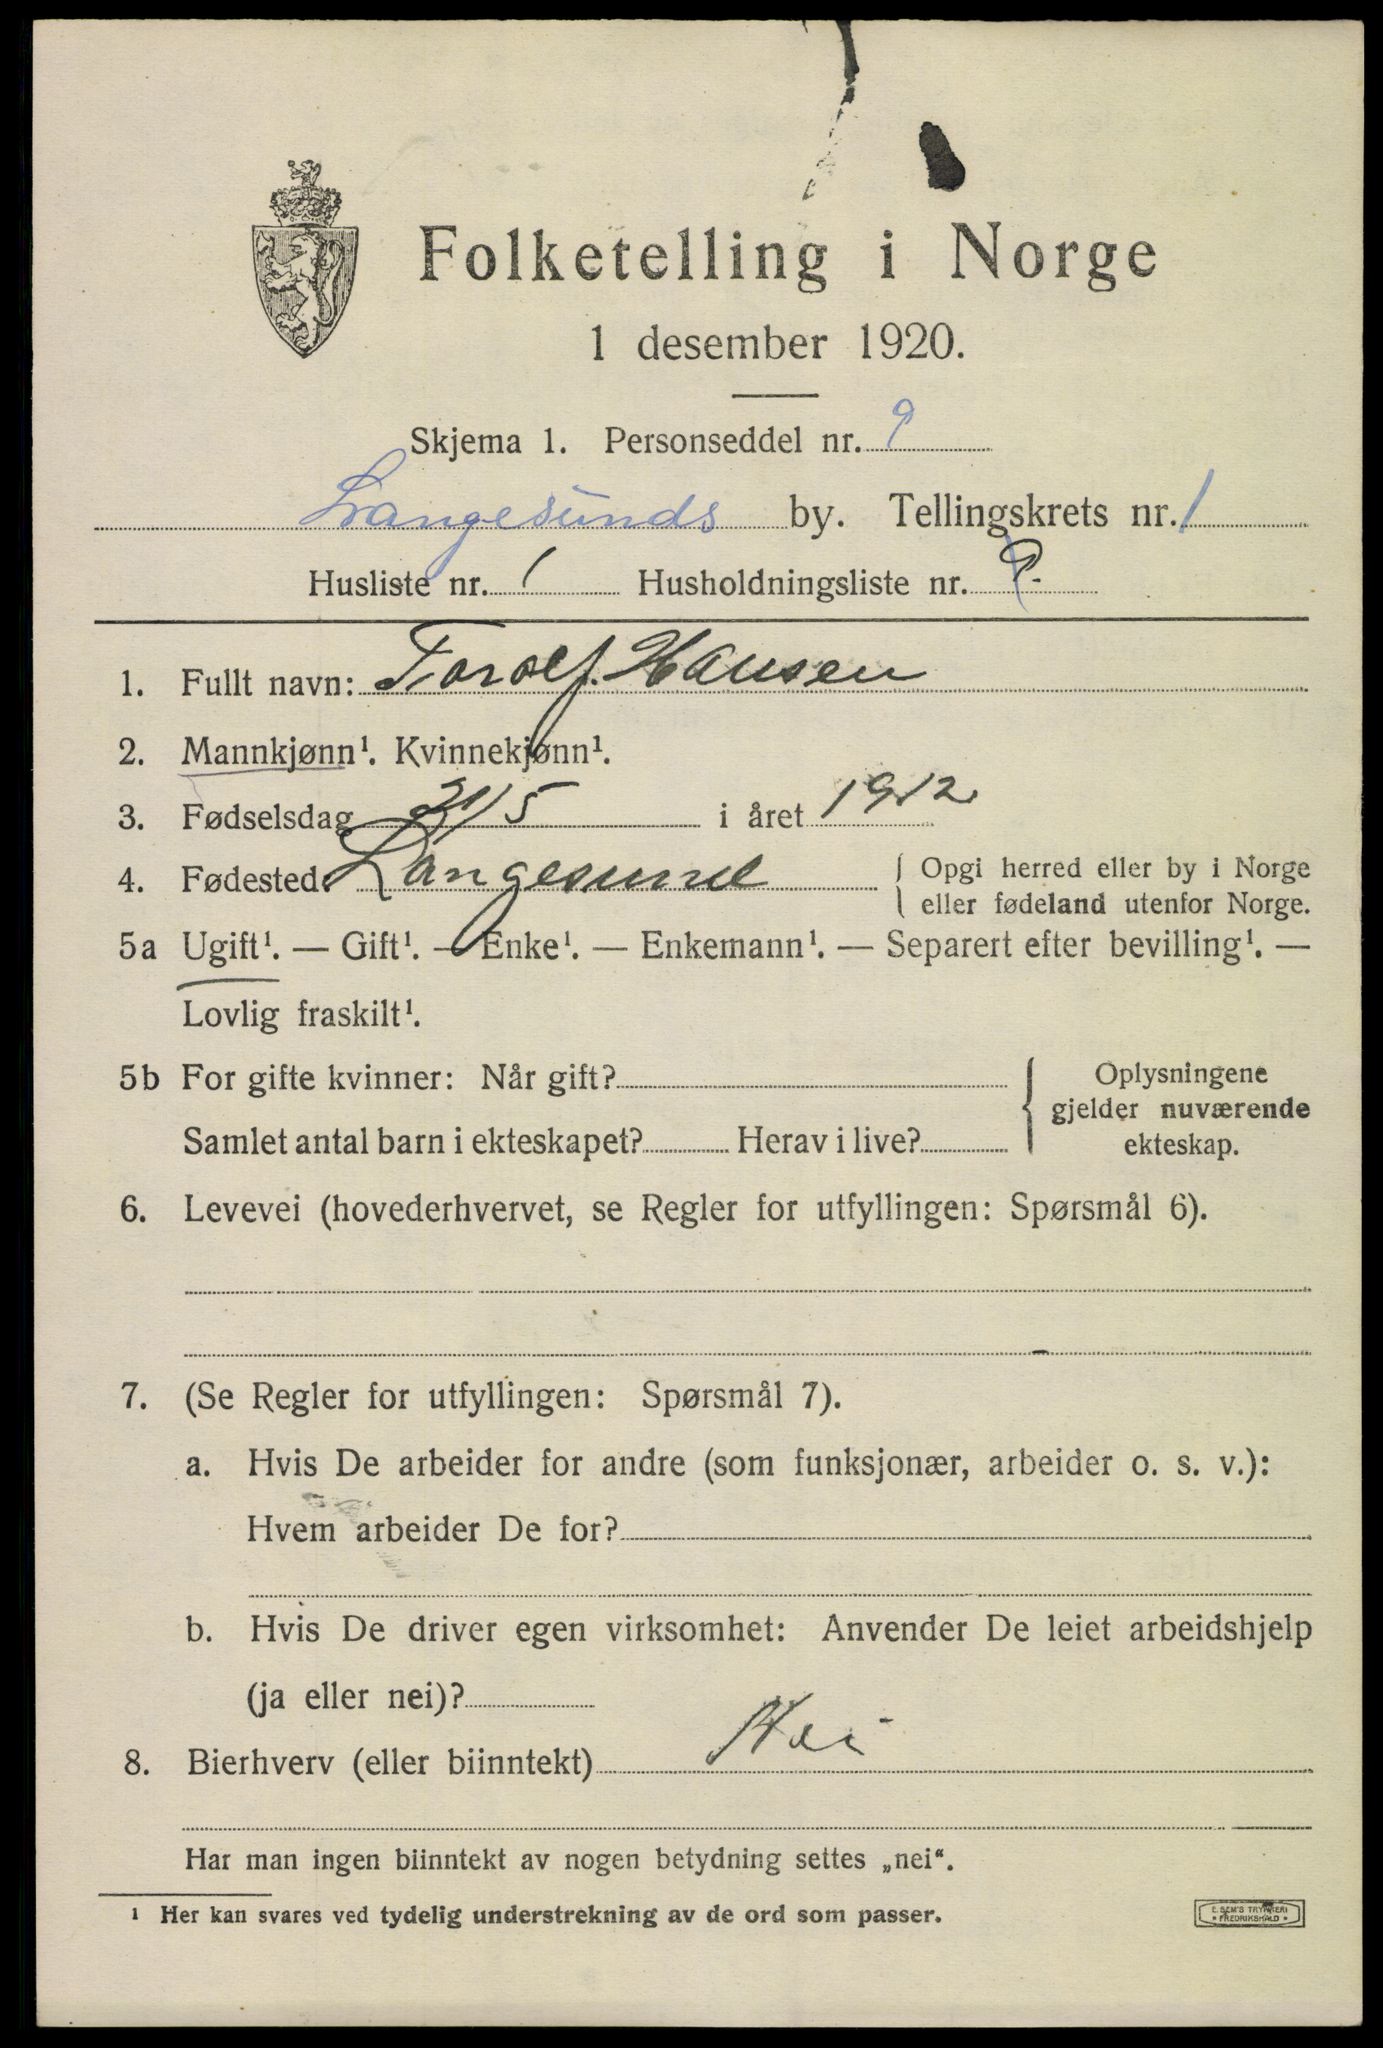 Folketelling i Norge
1 desember 1920.
Skjema 1. Personseddel nr. 9
Langesunds by. Tellingskrets nr. 1
Husliste nr. 1 Husholdningsliste nr.
1. Fullt navn: Torolf Hansen
2. Mannkjønn¹. Kvinnekjønn¹.
3. Fødselsdag 31/5 i året 1912
4. Fødested: Langesund { Opgi herred eller by i Norge
eller fødeland utenfor Norge.
5a Ugift¹. — Gift¹. — Enke¹. — Enkemann¹. — Separert efter bevilling¹. —
Lovlig fraskilt¹.
5b For gifte kvinner: Når gift? { Oplysningene
gjelder nuværende
Samlet antal barn i ekteskapet? Herav i live? ekteskap.
6. Levevei (hovederhvervet, se Regler for utfyllingen: Spørsmål 6).
7. (Se Regler for utfyllingen: Spørsmål 7).
a. Hvis De arbeider for andre (som funksjonær, arbeider o. s. v.):
Hvem arbeider De for?
b. Hvis De driver egen virksomhet: Anvender De leiet arbeidshjelp
(ja eller nei)?
8. Bierhverv (eller biinntekt) Nei
Har man ingen biinntekt av nogen betydning settes „nei“.
¹ Her kan svares ved tydelig understrekning av de ord som passer.
E. SEM'S TRYKKERI
* FREDRIKSHALD *